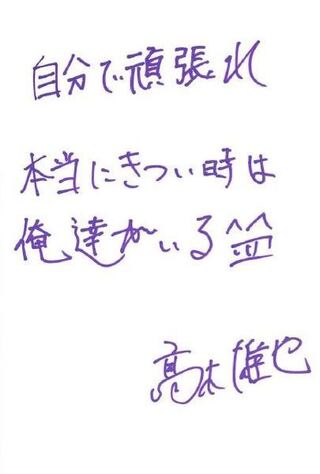 自分で頑張れ
本当にきつい時は
俺達がいる
髙木雄也